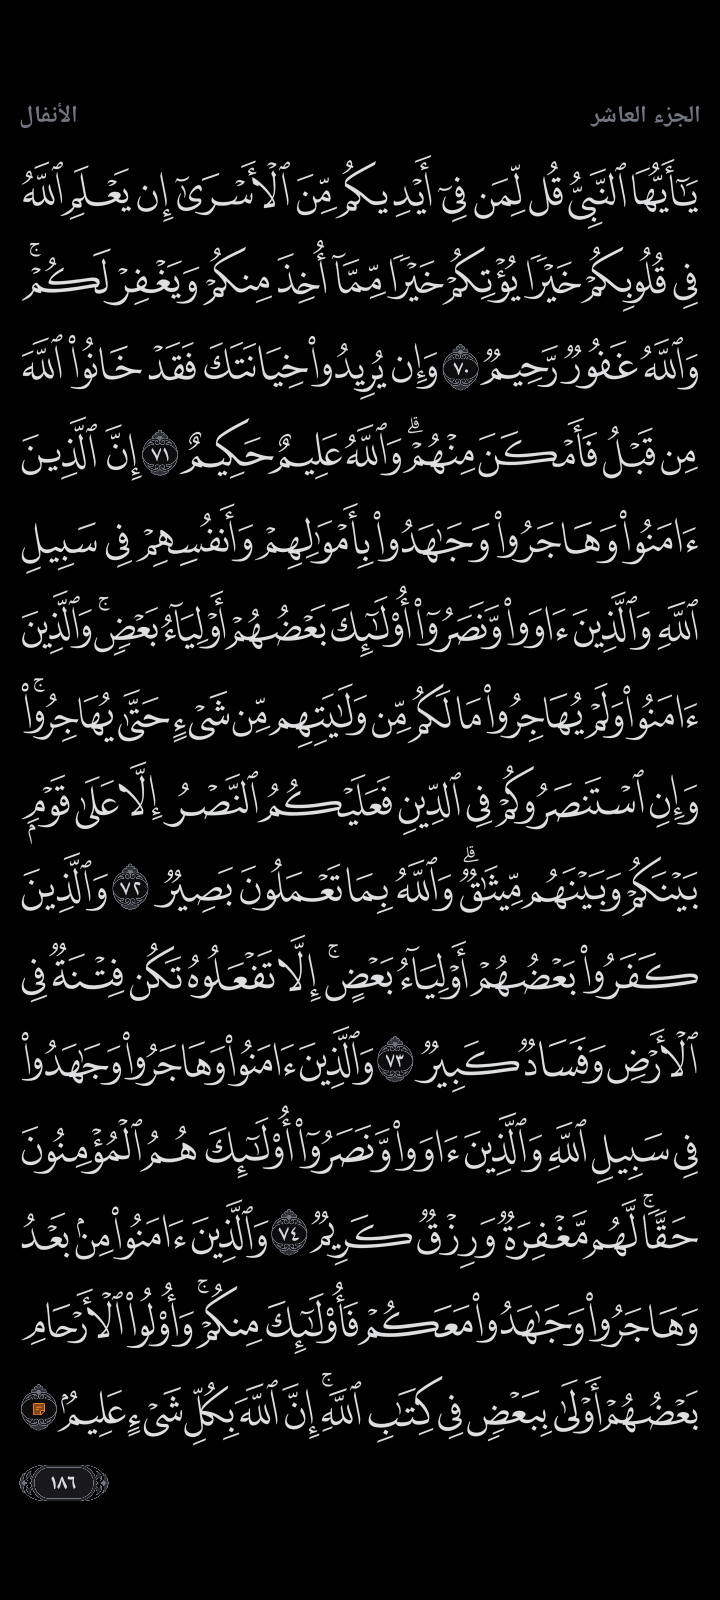 الجزء العاشر
الأنفال
يَـٰٓأَيُّهَا ٱلنَّبِىُّ قُل لِّمَن فِىٓ أَيْدِيكُم مِّنَ ٱلْأَسْرَىٰٓ إِن يَعْلَمِ ٱللَّهُ
فِى قُلُوبِكُمْ خَيْرًا يُؤْتِكُمْ خَيْرًا مِّمَّآ أُخِذَ مِنكُمْ وَيَغْفِرْ لَكُمْ ۚ
وَٱللَّهُ غَفُورٌ رَّحِيمٌ ٧٠ وَإِن يُرِيدُوا۟ خِيَانَتَكَ فَقَدْ خَانُوا۟ ٱللَّهَ
مِن قَبْلُ فَأَمْكَنَ مِنْهُمْ ۗ وَٱللَّهُ عَلِيمٌ حَكِيمٌ ٧١ إِنَّ ٱلَّذِينَ
ءَامَنُوا۟ وَهَاجَرُوا۟ وَجَـٰهَدُوا۟ بِأَمْوَٰلِهِمْ وَأَنفُسِهِمْ فِى سَبِيلِ
ٱللَّهِ وَٱلَّذِينَ ءَاوَوا۟ وَّنَصَرُوٓا۟ أُو۟لَـٰٓئِكَ بَعْضُهُمْ أَوْلِيَآءُ بَعْضٍ ۚ وَٱلَّذِينَ
ءَامَنُوا۟ وَلَمْ يُهَاجِرُوا۟ مَا لَكُم مِّن وَلَـٰيَتِهِم مِّن شَىْءٍ حَتَّىٰ يُهَاجِرُوا۟ ۚ
وَإِنِ ٱسْتَنصَرُوكُمْ فِى ٱلدِّينِ فَعَلَيْكُمُ ٱلنَّصْرُ إِلَّا عَلَىٰ قَوْمٍۭ
بَيْنَكُمْ وَبَيْنَهُم مِّيثَـٰقٌ ۗ وَٱللَّهُ بِمَا تَعْمَلُونَ بَصِيرٌ ٧٢ وَٱلَّذِينَ
كَفَرُوا۟ بَعْضُهُمْ أَوْلِيَآءُ بَعْضٍ ۚ إِلَّا تَفْعَلُوهُ تَكُن فِتْنَةٌ فِى
ٱلْأَرْضِ وَفَسَادٌ كَبِيرٌ ٧٣ وَٱلَّذِينَ ءَامَنُوا۟ وَهَاجَرُوا۟ وَجَـٰهَدُوا۟
فِى سَبِيلِ ٱللَّهِ وَٱلَّذِينَ ءَاوَوا۟ وَّنَصَرُوٓا۟ أُو۟لَـٰٓئِكَ هُمُ ٱلْمُؤْمِنُونَ
حَقًّا ۚ لَّهُم مَّغْفِرَةٌ وَرِزْقٌ كَرِيمٌ ٧٤ وَٱلَّذِينَ ءَامَنُوا۟ مِنۢ بَعْدُ
وَهَاجَرُوا۟ وَجَـٰهَدُوا۟ مَعَكُمْ فَأُو۟لَـٰٓئِكَ مِنكُمْ ۚ وَأُو۟لُوا۟ ٱلْأَرْحَامِ
بَعْضُهُمْ أَوْلَىٰ بِبَعْضٍ فِى كِتَـٰبِ ٱللَّهِ ۗ إِنَّ ٱللَّهَ بِكُلِّ شَىْءٍ عَلِيمٌۢ
١٨٦